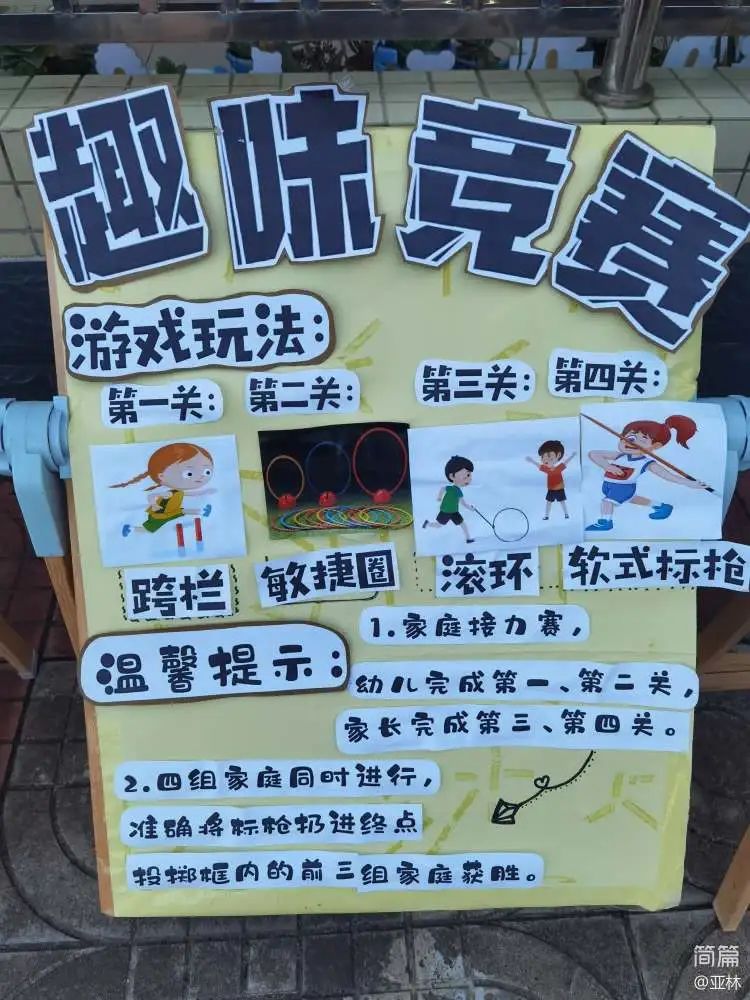 趣味竞赛
游戏玩法：
第一关： 第二关： 第三关： 第四关：
跨栏 敏捷圈 滚环 软式标枪
温馨提示：
1.家庭接力赛，
幼儿完成第一、第二关，
家长完成第三、第四关。
2.四组家庭同时进行，
准确将标枪扔进终点
投掷框内的前三组家庭获胜。
简篇
@亚林